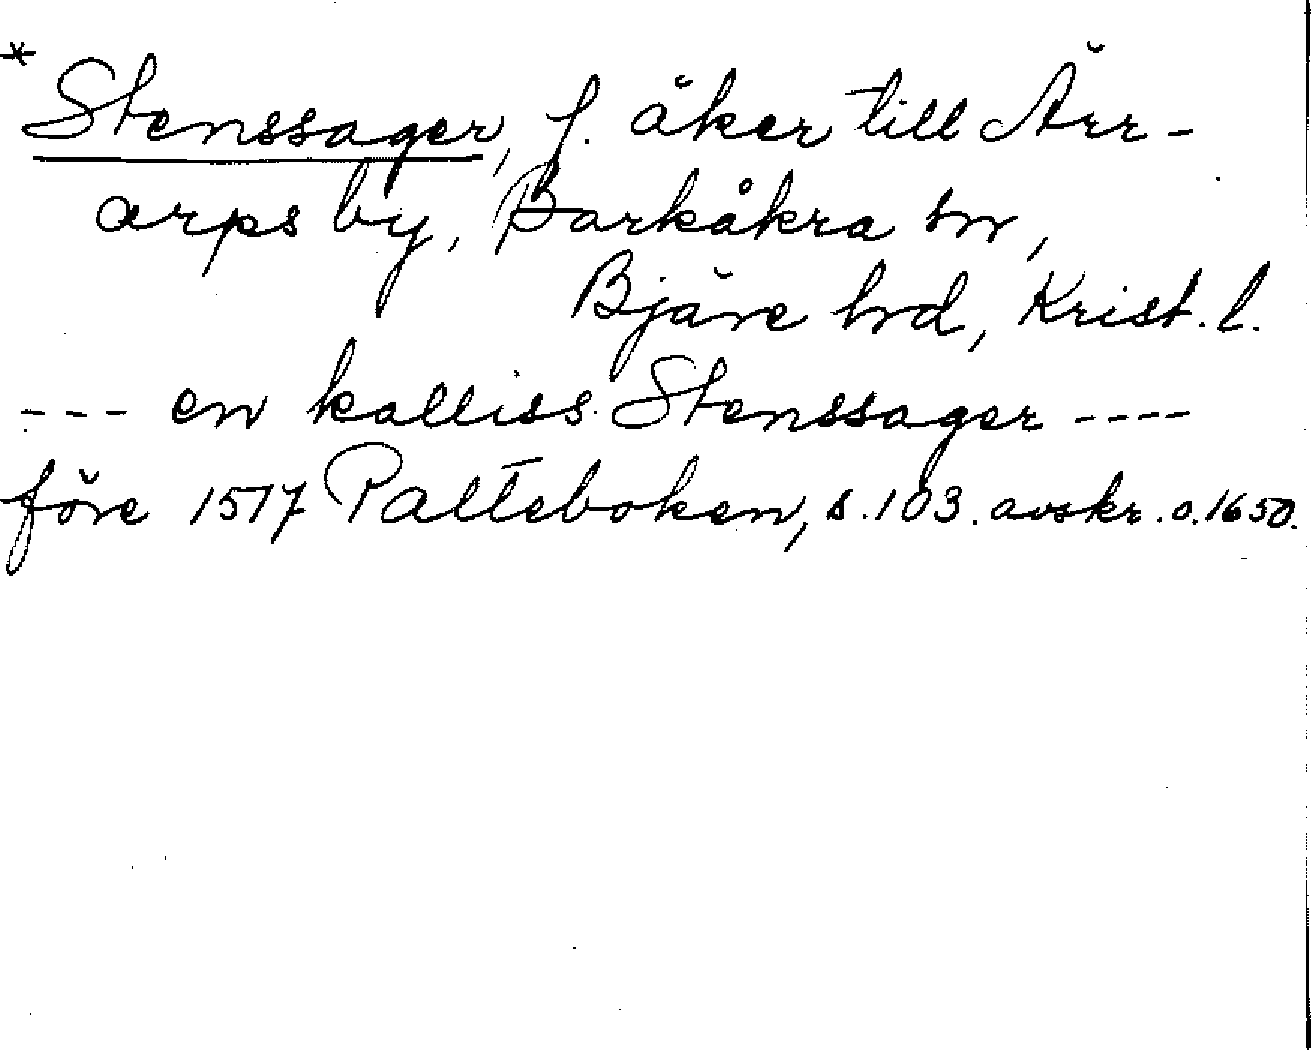 * Stenssager, f. åker till Ärr-
arps by, Barkåkra sn,
Bjäre hrd, Krist. l.
--- en kalliss Stenssager ----
före 1517 Palteboken, s. 103. avskr. o. 1650.